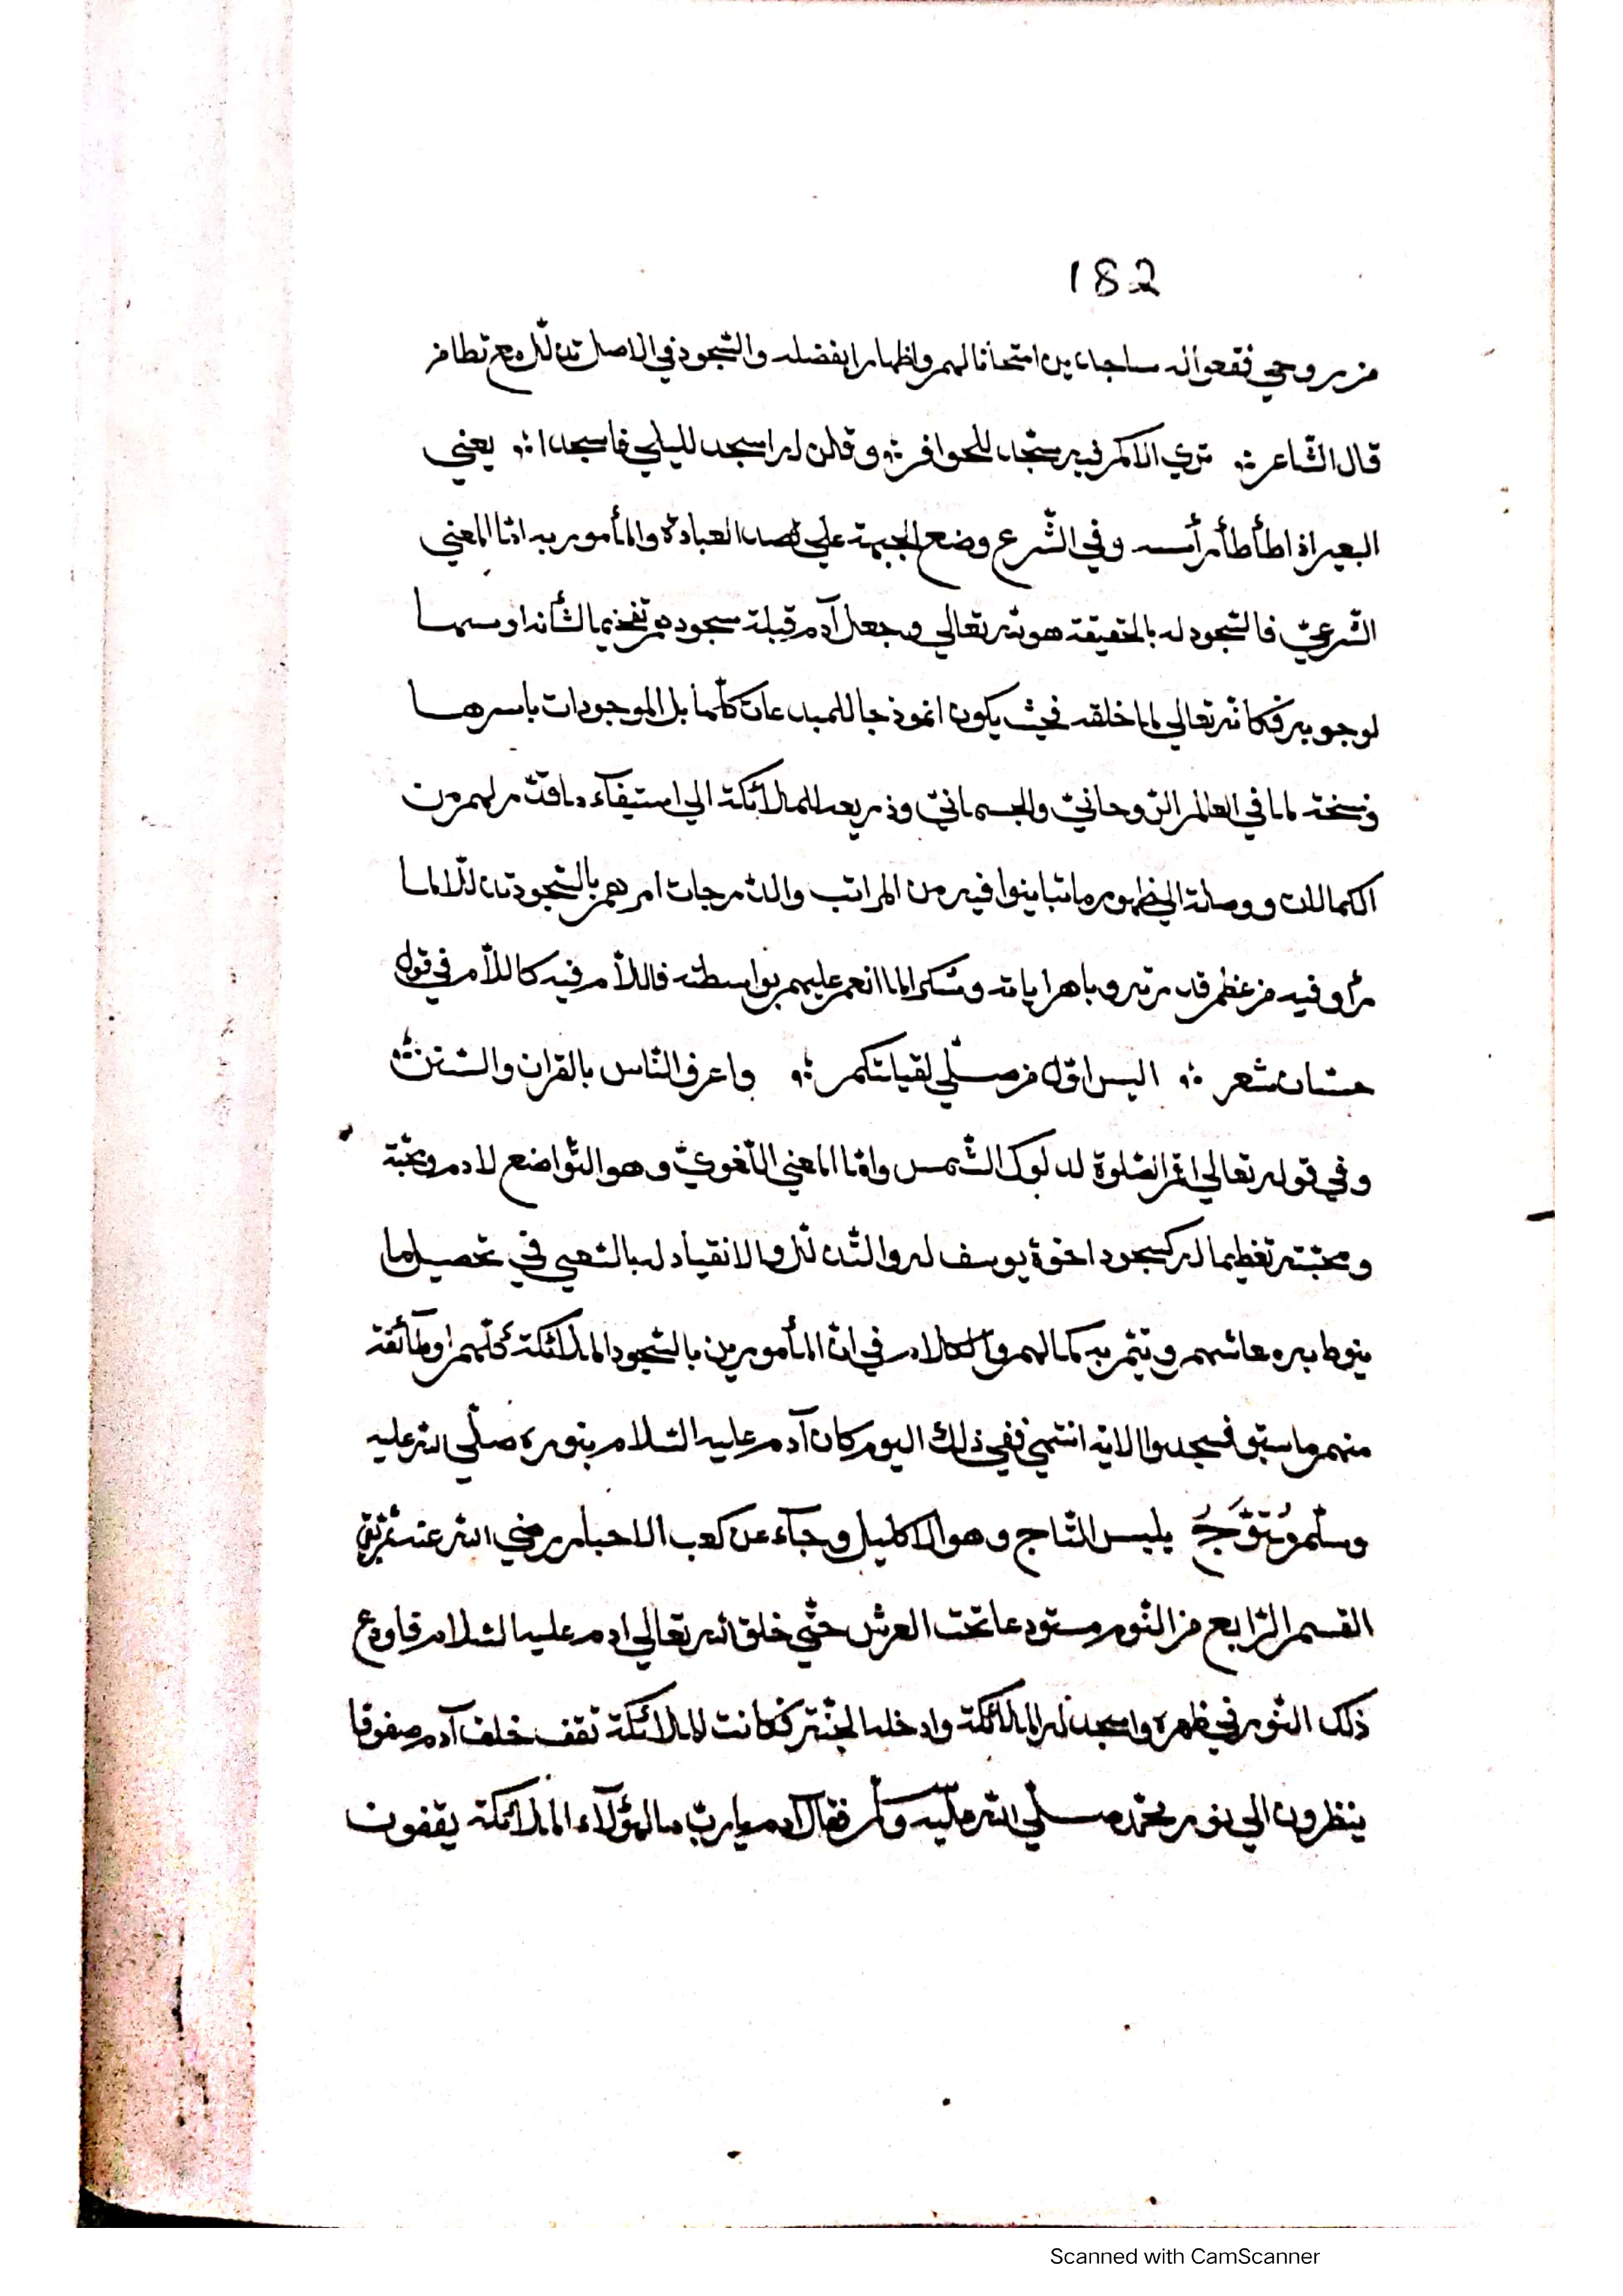 182
من روحي فقعوا له ساجدين امتحانا لهم واظهارا بفضله والسّجود في الاصل تذلّل مع تطامن
قال الشّاعر ؞ تري الاكم فيه سجّدا للحوافر ؞ وقلن له اسجد لليلي فاسجدا ؞ يعني
البعير اذا طأطأ رأسه وفي الشّرع وضع الجبهة علي قصد العبادة والمأمور به امّا المعني
الشّرعيّ فالسّجود له بالحقيقة هو الله تعالي وجعل آدم قبلة سجودهم تفخيما لشأنه او سببا
لوجوبه فكانّه تعالي لما خلقه بحيث يكون انموذجا للمبدعات كلّها بل الموجودات باسرها
ونسخة لما في العالم الرّوحانيّ والجسمانيّ وذريعة للملائكة الي استيفآء ما قدّر لهم من
الكمالات ووصلة الي ظهور ما تباينوا فيه من المراتب والدّرجات امرهم بالسّجود تذلّلا لما
رأو فيه من عظم قدرته وباهر اياته وشكرا لما انعم عليهم بواسطته فاللّام فيه كاللّام في قول
حسّان شعر ؞ اليس اوّل من صلّي لقبلتكم ؞ واعرف النّاس بالقران والسّنن
وفي قوله تعالي اقم الصّلوة لدلوك الشّمس وامّا المعني اللّغويّ وهو التّواضع لادم وتحيّة
ومحبّته تغظيما له كسجود اخوة يوسف له والتّذلّل والانقياد له بالسّعي في تحصيل ما
ينوط به معائشهم ويتمّ به كمالهم والكلام في انّ المأمورين بالسّجود الملائكة كلّهم او طآئفة
منهم ما سبق فسجدوا الاية انتهي ففي ذلك اليوم كان آدم عليه السّلام بنوره صلّي الله عليه
وسلّم مُتَوَّجٌ يلبس التّاج وهو الاكليل وجآء عن كعب الاحبار رضي الله عنه ثمّ بقي
القسم الرّابع من النّور مستودعا تحت العرش حتّي خلق الله تعالي ادم عليه السّلام فاودع
ذلك النّور في ظهره واسجد له الملائكة وادخله الجنّة فكانت الملائكة تقف خلف آدم صفوفا
ينظرون الي نور محمّد صلّي الله عليه وسلّم فقال ادم يا ربّ ما لهؤلآء الملائكة يقفون
Scanned with CamScanner